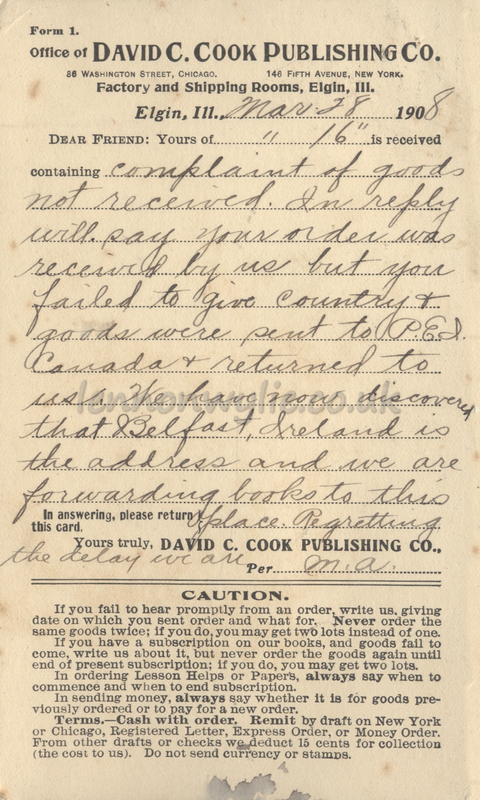 Form 1.
Office of DAVID C. COOK PUBLISHING CO.
36 WASHINGTON STREET, CHICAGO. 146 FIFTH AVENUE, NEW YORK.
Factory and Shipping Rooms, Elgin, Ill.
Elgin, Ill., Mar. 28 1908
DEAR FRIEND: Yours of " 16" is received
containing complaint of goods
not received. In reply
will say your order was
received by us but you
failed to give country &
goods were sent to P.E.I.
Canada & returned to
us. We have now discovered
that Belfast, Ireland is
the address and we are
forwarding books to this
In answering, please return
this card.
place. Regretting
Yours truly, DAVID C. COOK PUBLISHING CO.,
the delay we are
Per M.A.
CAUTION.
If you fail to hear promptly from an order, write us, giving
date on which you sent order and what for. Never order the
same goods twice; if you do, you may get two lots instead of one.
If you have a subscription on our books, and goods fail to
come, write us about it, but never order the goods again until
end of present subscription; if you do, you may get two lots.
In ordering Lesson Helps or Papers, always say when to
commence and when to end subscription.
In sending money, always say whether it is for goods pre-
viously ordered or to pay for a new order.
Terms.—Cash with order. Remit by draft on New York
or Chicago, Registered Letter, Express Order, or Money Order.
From other drafts or checks we deduct 15 cents for collection
(the cost to us). Do not send currency or stamps.